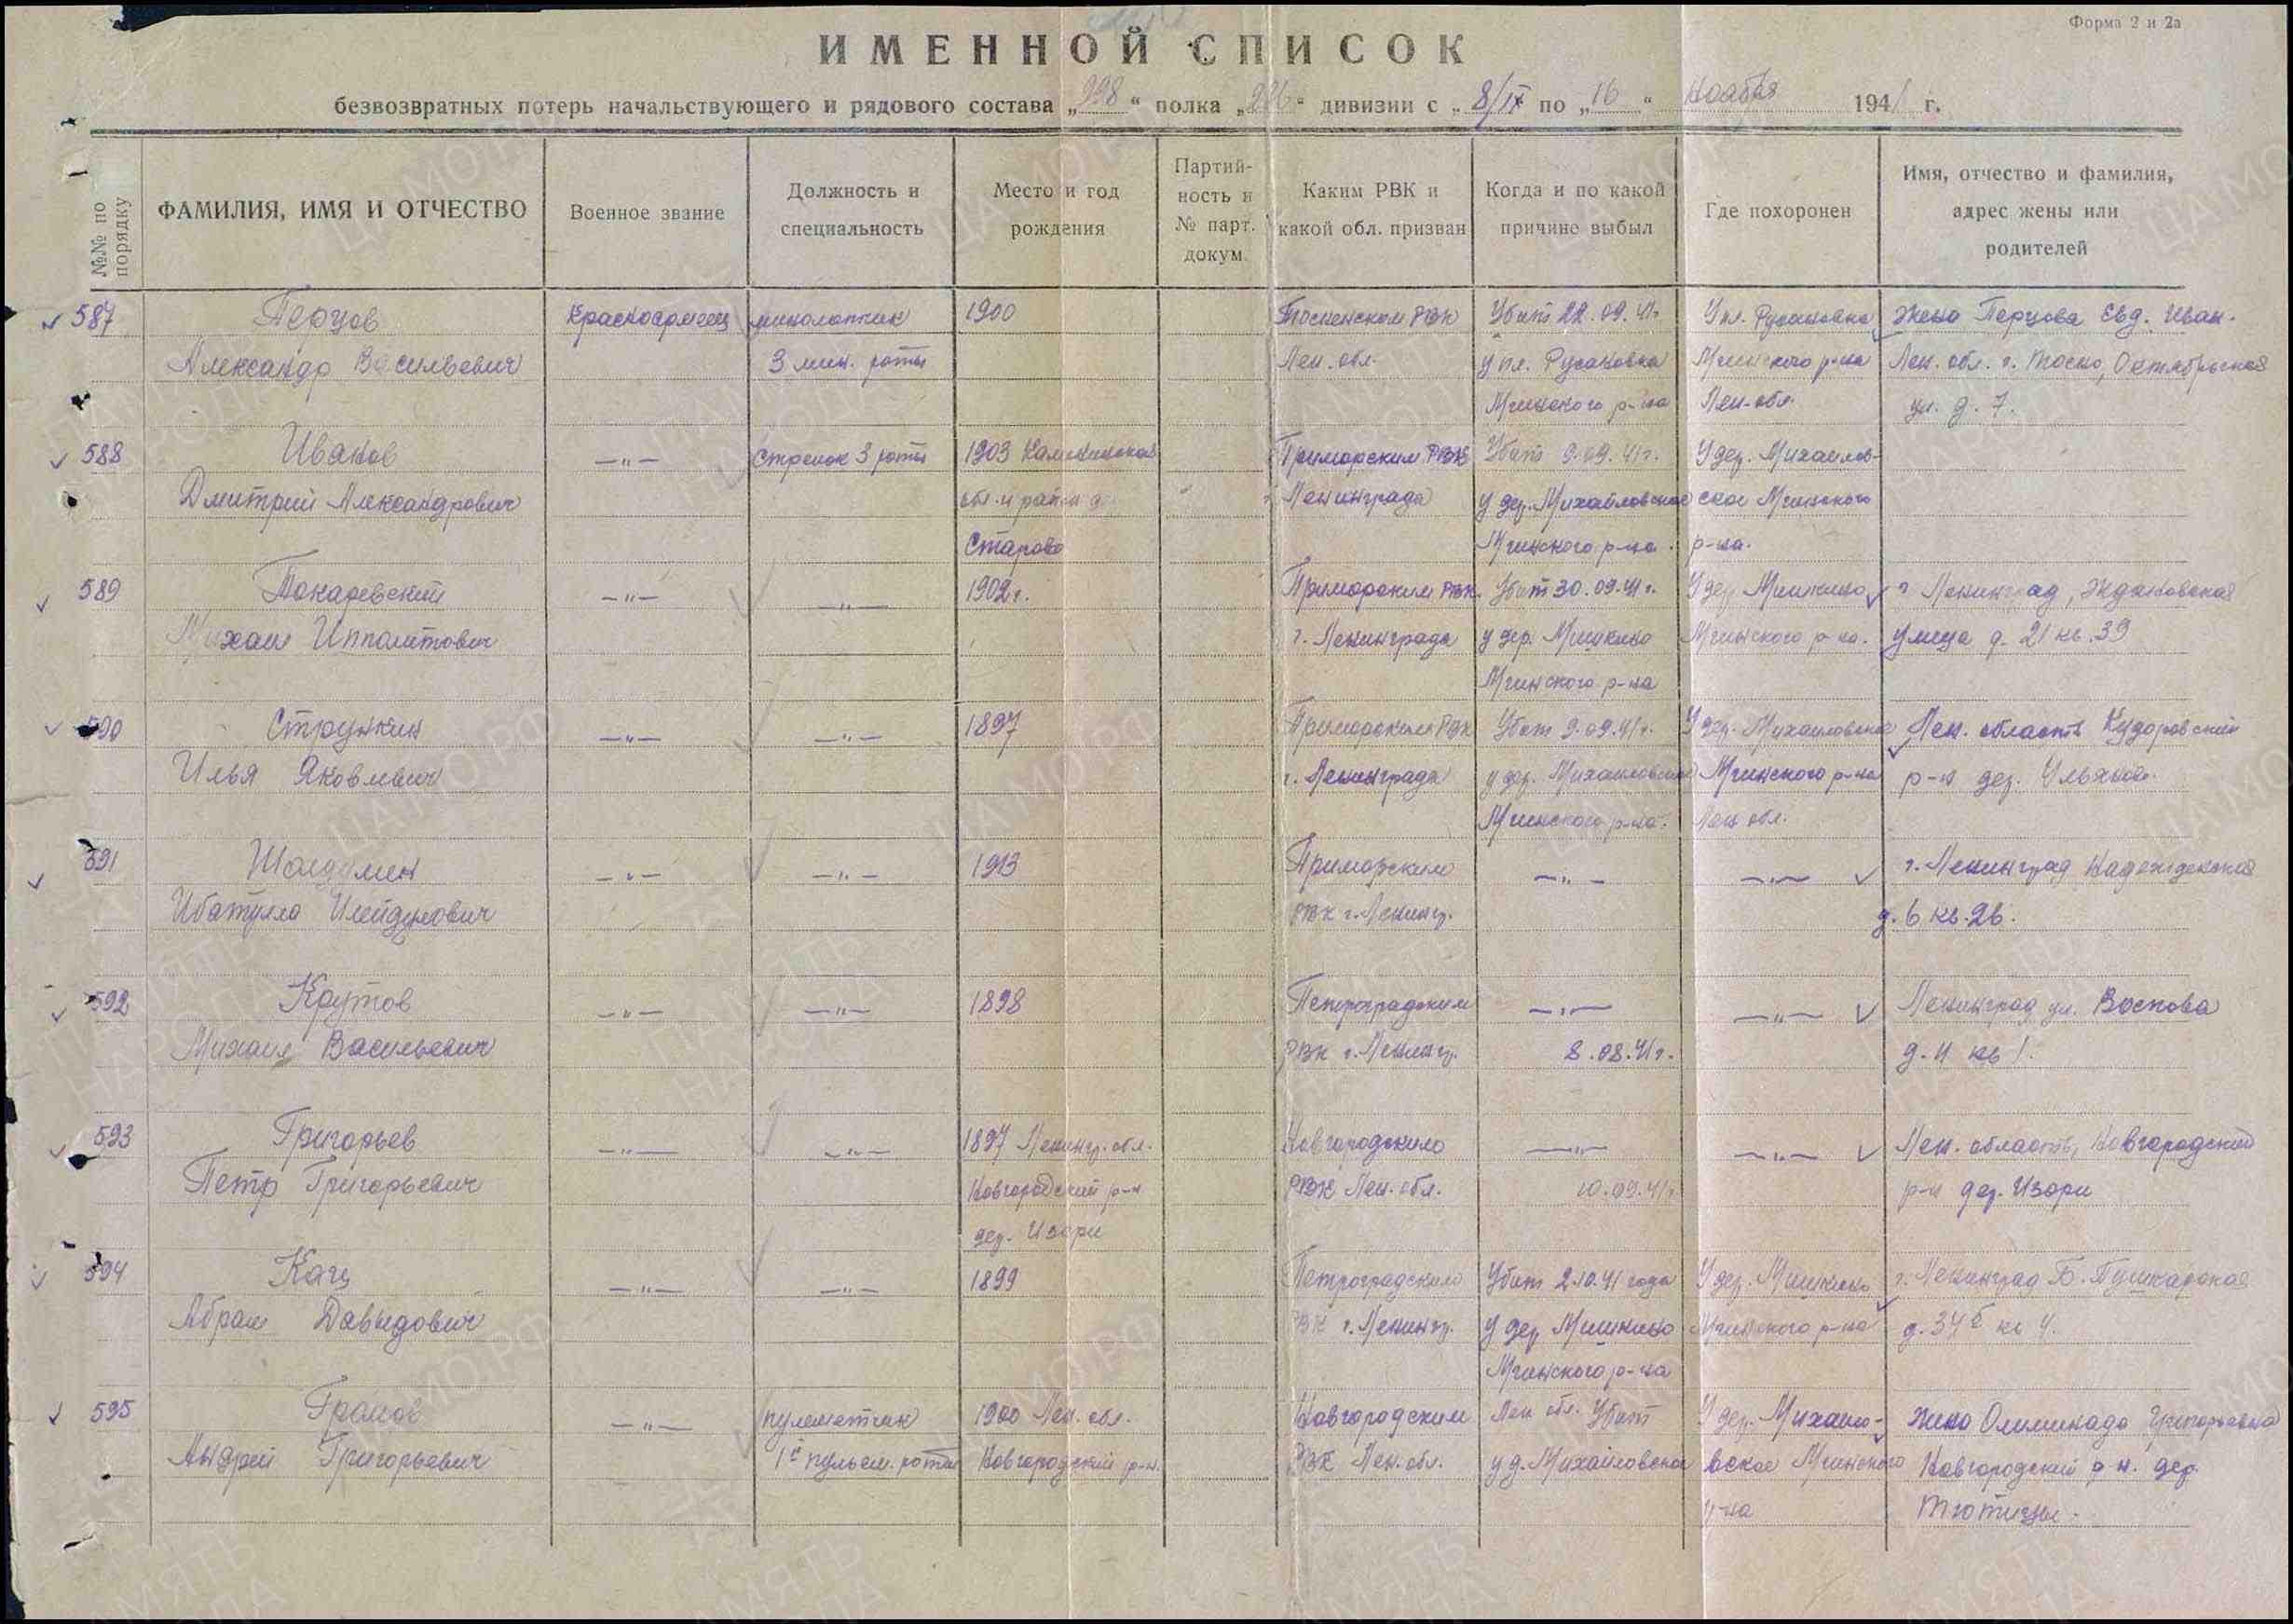 Форма 2 и 2а
ИМЕННОЙ СПИСОК
безвозвратных потерь начальствующего и рядового состава „998“ полка „286“ дивизии с „8/IX по „16“ Ноября 1941 г.
№№ по порядку
ФАМИЛИЯ, ИМЯ И ОТЧЕСТВО
Военное звание
Должность и
специальность
Место и год
рождения
Партий-
ность и
№ парт.
докум.
Каким РВК и
какой обл. призван
Когда и по какой
причине выбыл
Где похоронен
Имя, отчество и фамилия,
адрес жены или
родителей
587 Перцов Красноармеец 1900 Тосненским РВК Убит 22.09.41г. У пл. Русановка Жена Перцова Евд. Иван.
Александр Васильевич 3 мин. роты Лен. обл. у пл. Русановка Мгинского р-на Лен. обл. г. Тосно, Октябрьская
Мгинского р-на Лен. обл. ул. д. 7.
588 Иванов —„— Стрелок 3 роты 1903 Калининская Приморским РВК Убит 9.09.41г. У дер. Михайлов-
Дмитрий Александрович обл. и район д. Ленинграда у дер. Михайловское ское Мгинского
Старово Мгинского р-на. р-на.
589 Токаревский —„— —„— 1902г. Приморским РВК Убит 30.09.41г. У дер. Мишкино г Ленинград, Ждановская
Михаил Ипполитович г. Ленинграда у дер. Мишкино Мгинского р-на. улица д. 21 кв. 39
Мгинского р-на
590 Стрункин —„— —„— 1897 Приморским РВК Убит 9.09.41г. У дер. Михайловское Лен. область
Илья Яковлевич г. Ленинграда у дер. Михайловское Мгинского р-на р-н дер.
Мгинского р-на. Лен обл.
591 —„— —„— 1913 Приморским —„— —„— г. Ленинград Надеждинская
Ибатулла РВК г. Ленингр. д. 6 кв. 26.
592 Крутов —„— —„— 1898 Петроградским —„— —„— Ленинград ул. Воскова
Михаил Васильевич РВК г. Ленингр. 8.08.41г. д. 11 кв 1.
593 Григорьев —„— —„— 1897 Ленингр. обл. Новгородским —„— —„— Лен. область, Новгородский
Петр Григорьевич Новгородский р-н РВК Лен. обл. 10.09.41г р-н дер. Извори
дер. Извори
594 Кац —„— —„— 1899 Петроградским Убит 2.10.41 года У дер. Мишкино г. Ленинград Б. Пушкарская
Абрам Давыдович РВК г. Ленингр. у дер Мишкино Мгинского р-на д. 34б кв 4.
Мгинского р-на
595 Громов —„— пулеметчик 1900 Лен. обл. Новгородским Лен обл. Убит У дер. Михайло- жена Григорьевна
Андрей Григорьевич 1й пульем. роты Новгородский р-н. РВК Лен. обл. у д. Михайловское вское Мгинского Новгородский р-н. дер.
р-на